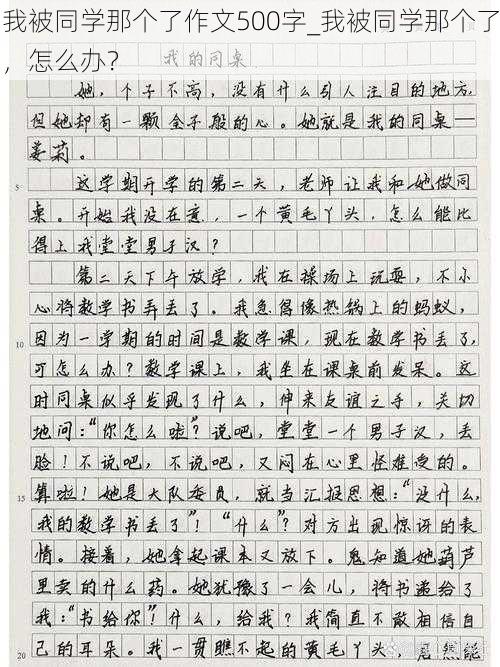 我被同学那个了作文500字_我被同学那个了
，怎么办？
我的同桌
她，个子不高，没有什么引人注目的地方，
但她却有一颗金子般的心。她就是我的同桌——
姜莉。
5
这学期开学的第二天，老师让我和她做同
桌。开始我没在意，一个黄毛丫头，怎么能比
得上我堂堂男子汉？
第二天下午放学，我在操场上玩耍，不小
心将数学书弄丢了。我急得像热锅上的蚂蚁，
10
因为一学期的时间是数学课，现在数学书丢了，
可怎么办？数学课上，我坐在课桌前发呆。这
时同桌似乎发现了什么，伸来友谊之手，关切
地问：“你怎么啦？说吧，堂堂一个男子汉，丢
脸！不说吧，不说吧，又闷在心里怪难受的。
15
算啦！她是大队委员，就当汇报思想：“没什么，
我的数学书丢了”！“什么”？对方出现惊讶的表
情。接着，她拿起课本又放下。鬼知道她葫芦
里卖的什么药。她犹豫了一会儿，将书递给了
我：“书给你！什么，给我？我简直不敢相信自
20
己的耳朵。我一贯瞧不起的黄毛丫头，居然能